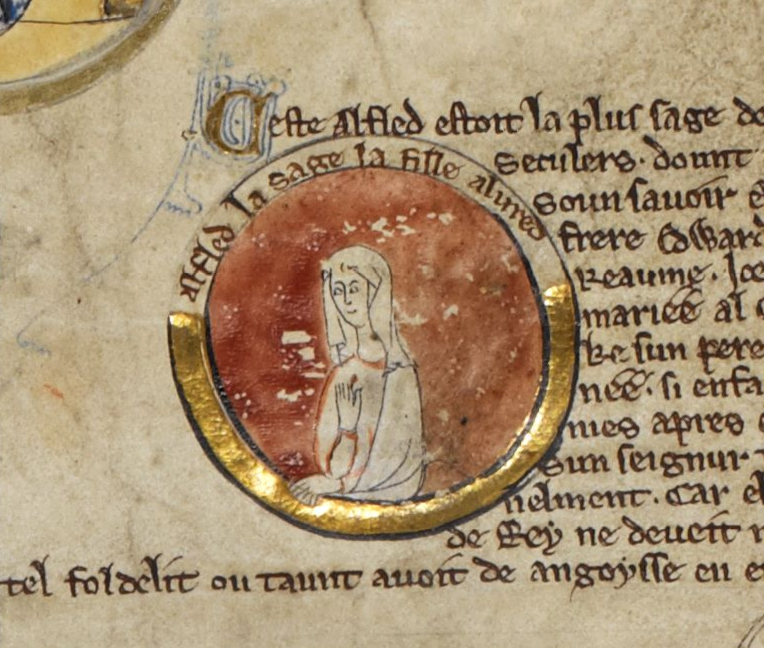 Ceste Alfled estoit la plus sage de
alfled la sage la fille alured
seculers. dount
soun sauoir e
frere Edward
Reaume. Ice
mariee al
ke sun pere
nee. si enfa
mes apres
sun seignur
nelment. Car el
de Rey ne deueit
tel foldelit ou taunt auoit de angoysse en e